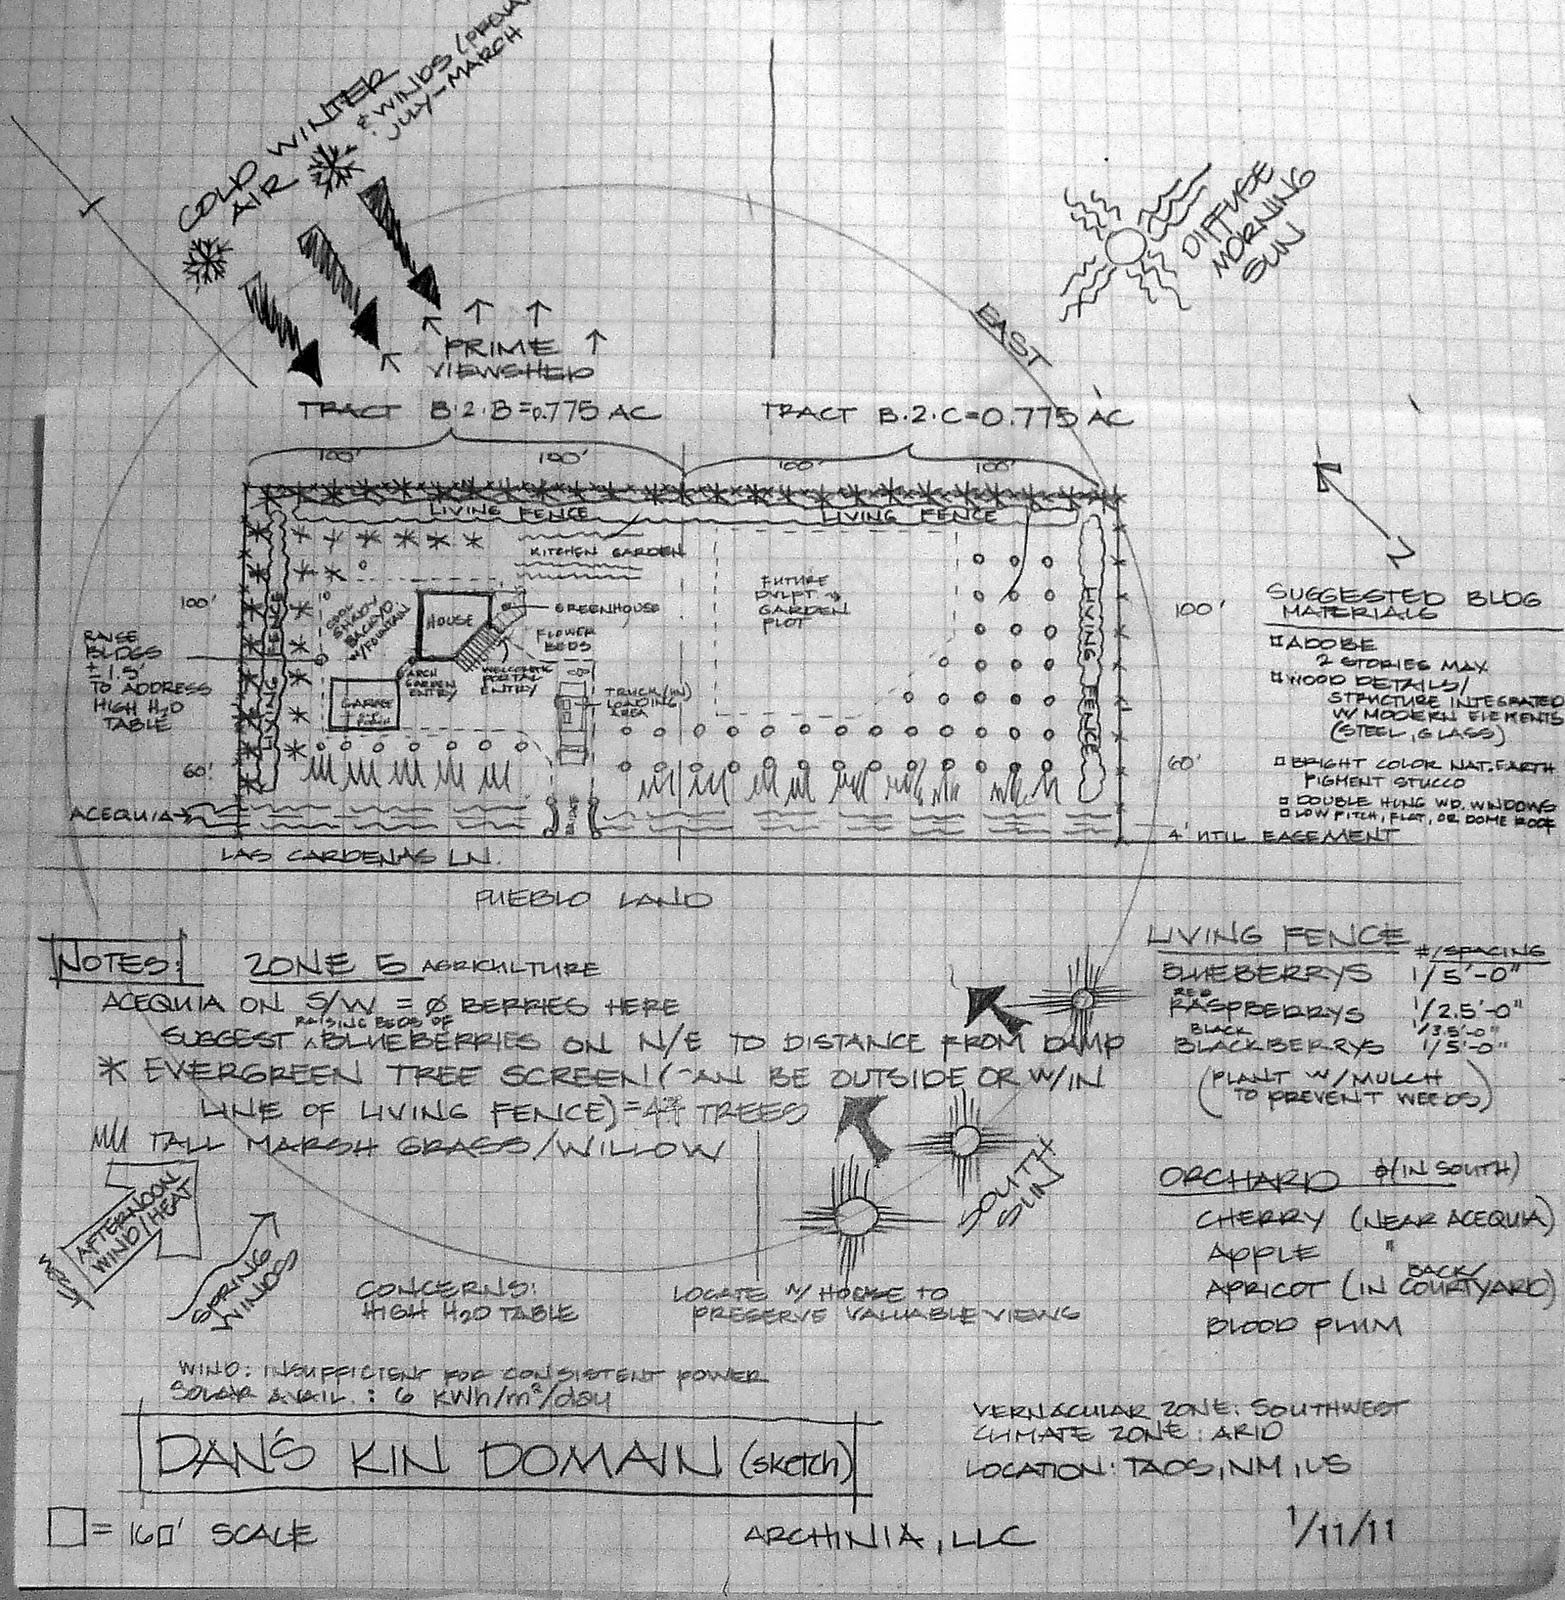 COLD WINTER
AIR
& WINDS
JULY-MARCH
DIFFUSE
MORNING
SUN
EAST
PRIME
VIEWSHED
TRACT B.2.B=0.775 AC
TRACT B.2.C=0.775 AC
100' 100' 100' 100'
LIVING FENCE
LIVING FENCE
KITCHEN GARDEN
LIVING FENCE
LIVING FENCE
100'
100'
60'
60'
RAISE
BLDGS
± 1.5'
TO ADDRESS
HIGH H2O
TABLE
SHADY
BACKYD
W/FOUNTAIN
HOUSE
GREENHOUSE
FLOWER
BEDS
ARCH
GARDEN
ENTRY
PORTAL
ENTRY
GARAGE
TRUCK (IN)
LOADING
AREA
FUTURE
DVLPT →
GARDEN
PLOT
ACEQUIA
LAS CARDENAS LN.
4' UTIL EASEMENT
PUEBLO LAND
SUGGESTED BLDG
MATERIALS
ADOBE
2 STORIES MAX
WOOD DETAILS/
STRUCTURE INTEGRATED
W/ MODERN ELEMENTS
(STEEL, GLASS)
BRIGHT COLOR NAT. EARTH
PIGMENT STUCCO
DOUBLE HUNG WD. WINDOWS
LOW PITCH, FLAT, OR DOME ROOF
NOTES: ZONE 5 AGRICULTURE
ACEQUIA ON S/W = Ø BERRIES HERE
SUGGEST ^RAISING BEDS OF BLUEBERRIES ON N/E TO DISTANCE FROM DAMP
* EVERGREEN TREE SCREEN (CAN BE OUTSIDE OR W/IN
LINE OF LIVING FENCE) = TREES
TALL MARSH GRASS/WILLOW
LIVING FENCE #/SPACING
BLUEBERRYS 1/5'-0"
RED
RASPBERRYS 1/2.5'-0"
BLACK 1/3.5'-0"
BLACKBERRYS 1/5'-0"
(PLANT W/MULCH
TO PREVENT WEEDS)
ORCHARD (IN SOUTH)
CHERRY (NEAR ACEQUIA)
APPLE "
APRICOT (IN BACK/COURTYARD)
BLOOD PLUM
AFTERNOON
WIND/HEAT
SPRING
WINDS
SOUTH
SUN
CONCERNS:
HIGH H2O TABLE
LOCATE W/ HOUSE TO
PRESERVE VALUABLE VIEWS
WIND: INSUFFICIENT FOR CONSISTENT POWER
SOLAR AVAIL.: 6 KWh/m²/day
DAN'S KIN DOMAIN (sketch)
VERNACULAR ZONE: SOUTHWEST
CLIMATE ZONE: ARID
LOCATION: TAOS, NM, US
= 160' SCALE
ARCHINIA, LLC
1/11/11